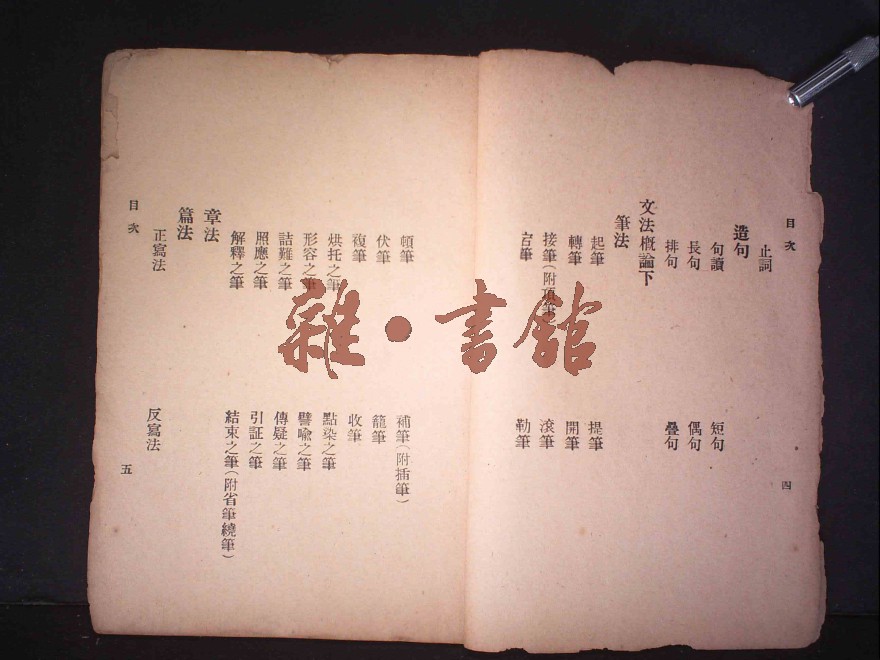 目次 四
止詞
造句
句讀 短句
長句 偶句
排句 疊句
文法概論下
筆法
起筆 提筆
轉筆 開筆
接筆(附頂筆) 滾筆
筆 勒筆
頓筆 補筆(附插筆)
伏筆 籠筆
複筆 收筆
烘托之筆 點染之筆
形容之筆 譬喩之筆
詰難之筆 傳疑之筆
照應之筆 引証之筆
解釋之筆 結束之筆(附省筆繞筆)
章法
篇法
正寫法 反寫法
目次 五
雜·書館